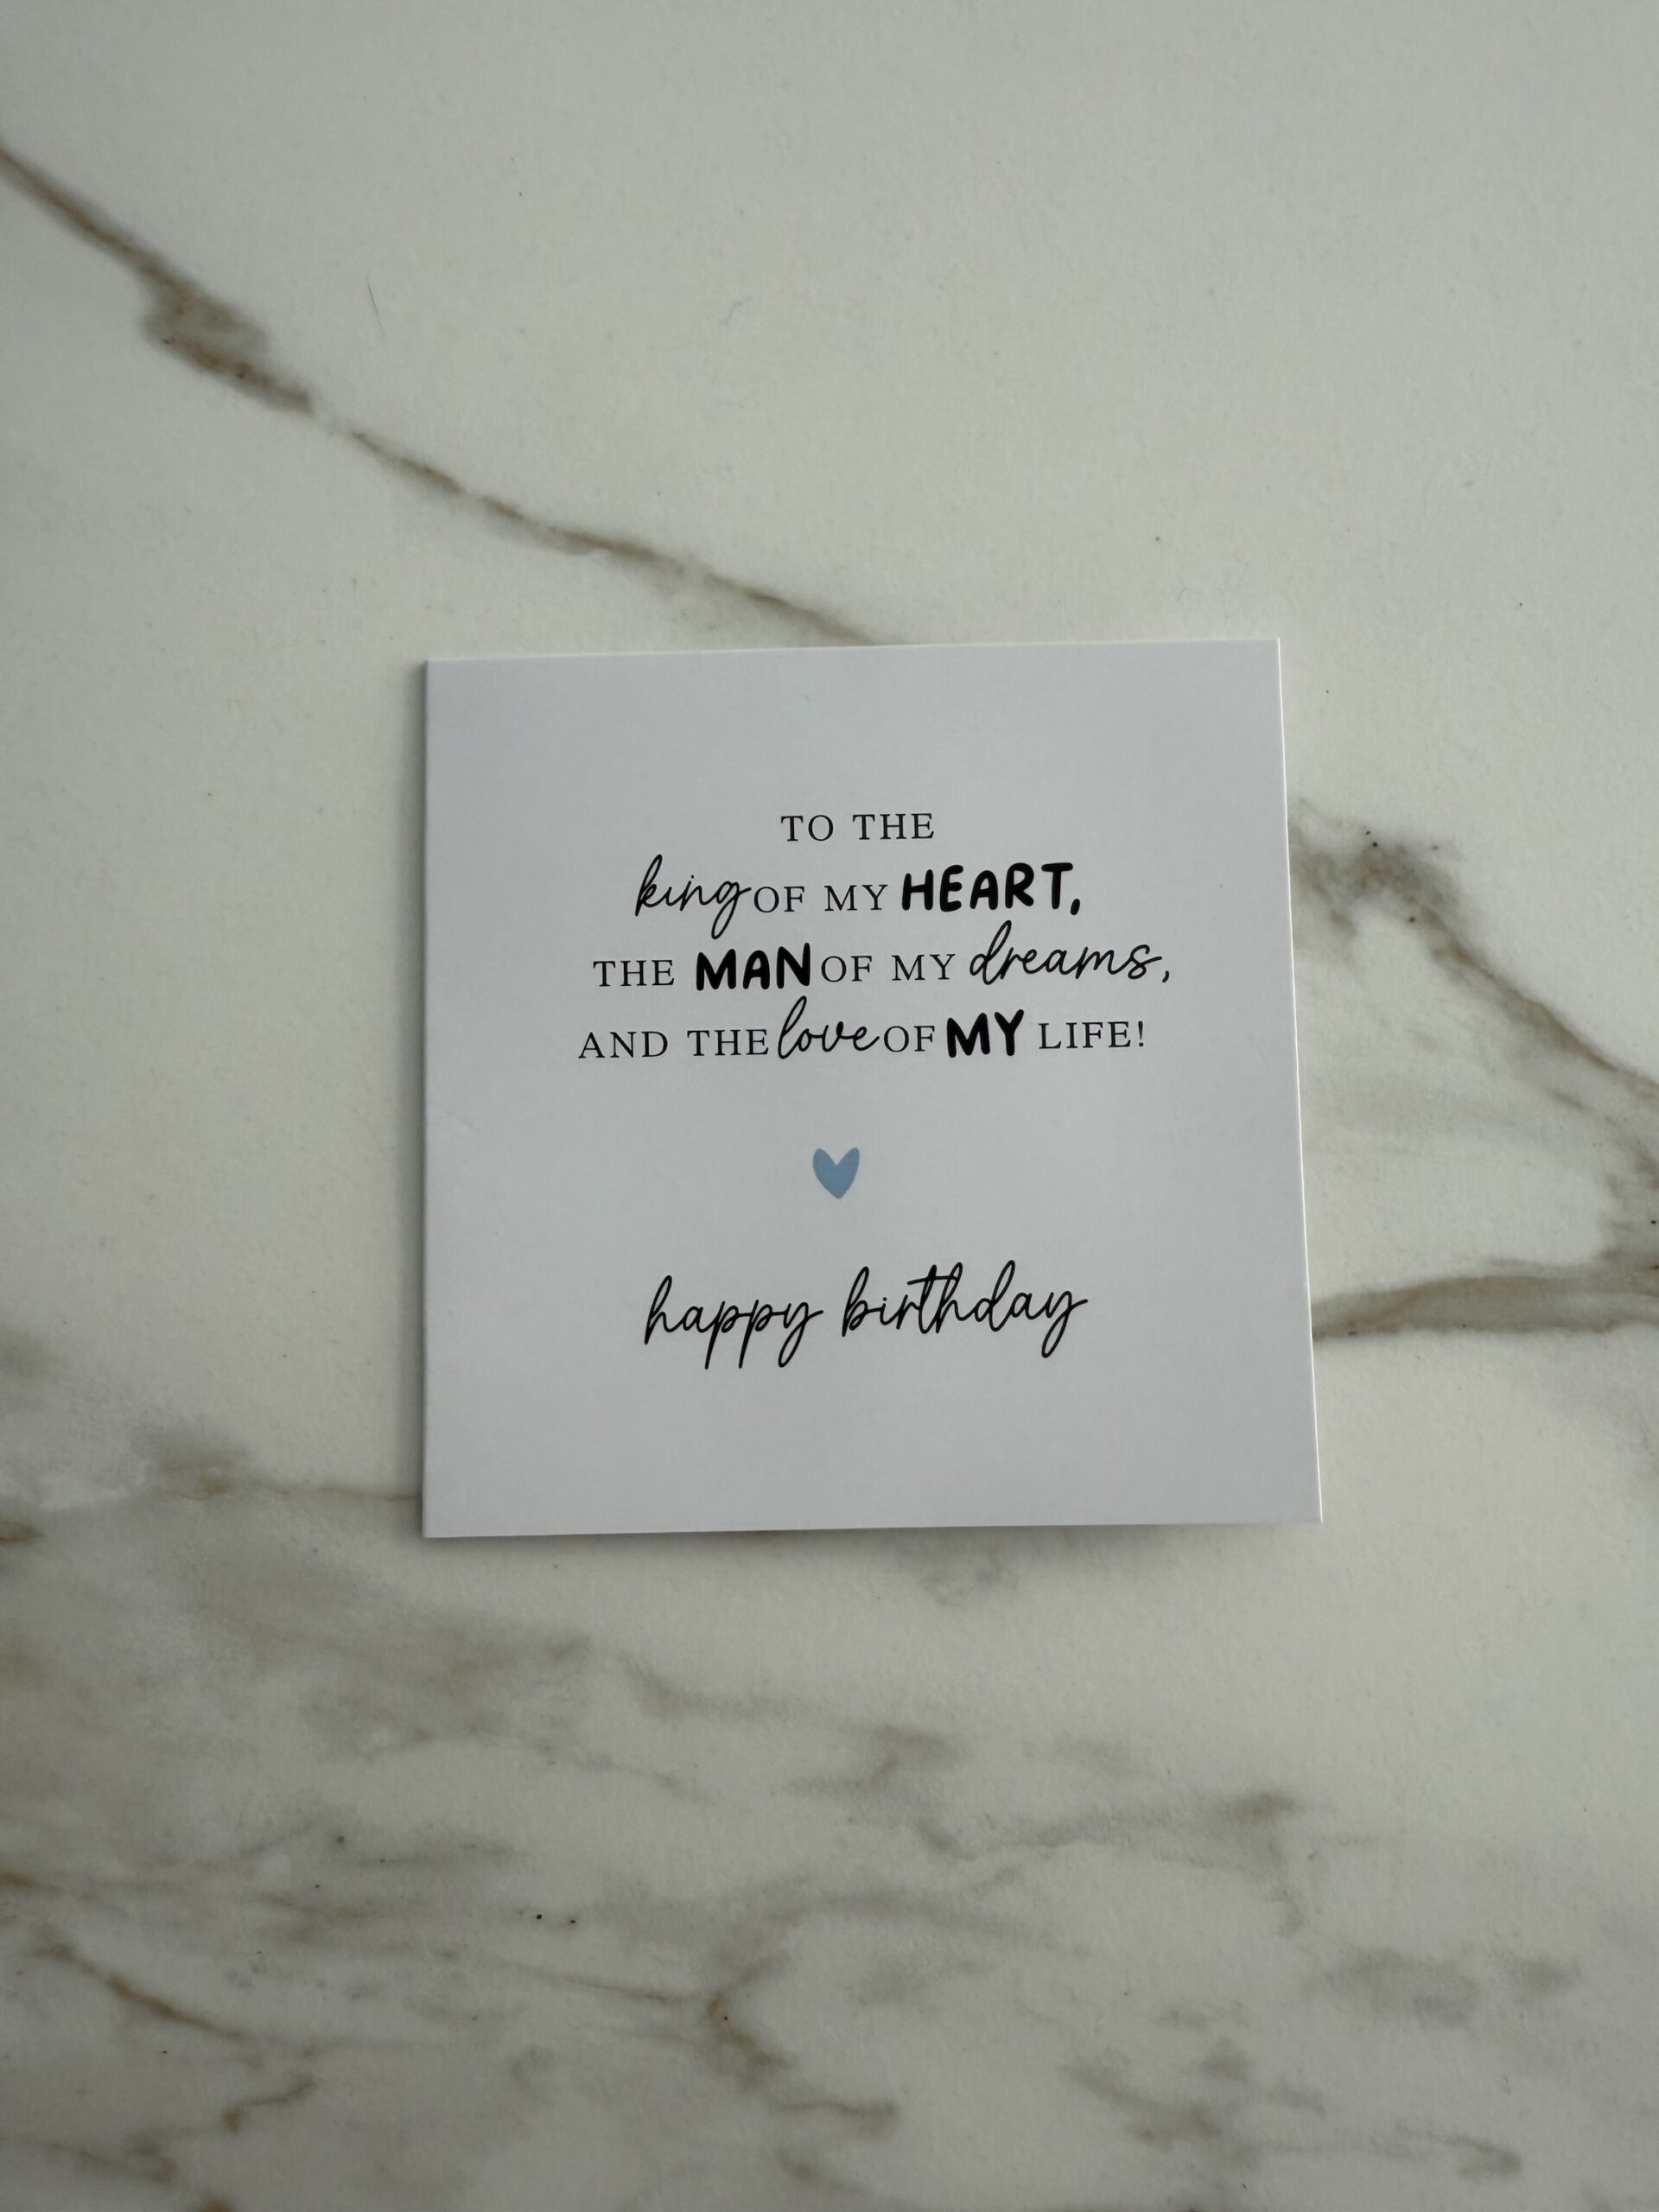 TO THE
king OF MY HEART,
THE MAN OF MY dreams,
AND THE love OF MY LIFE!
happy birthday